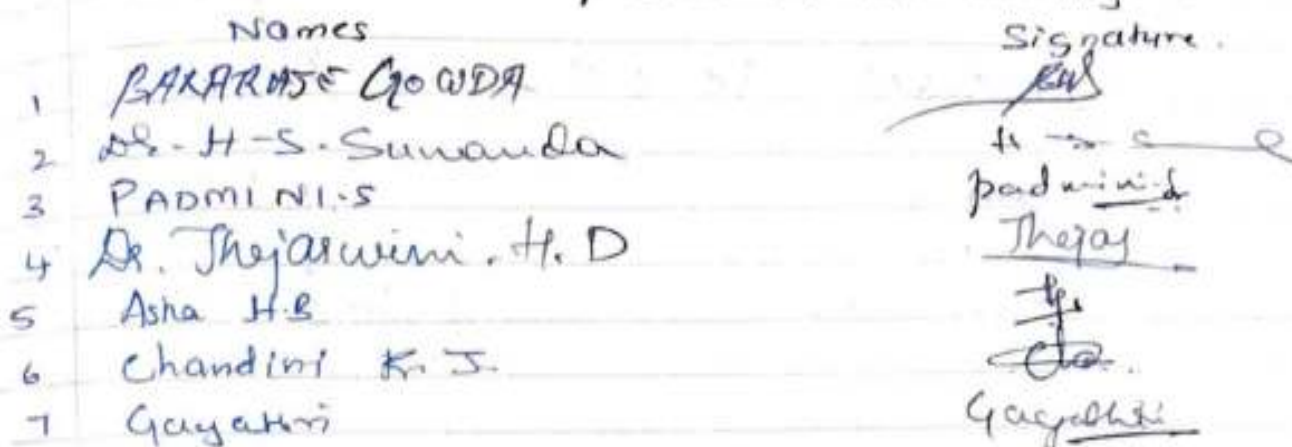 Names Signature.
1 GOWDA
2 Dr. H-S. Sunanda
3 PADMINI.S padmini.S
4 Dr. Thejaswini. H. D Thejas
5 Asha H.B
6 Chandini K. J.
7 Gayathri Gayathri